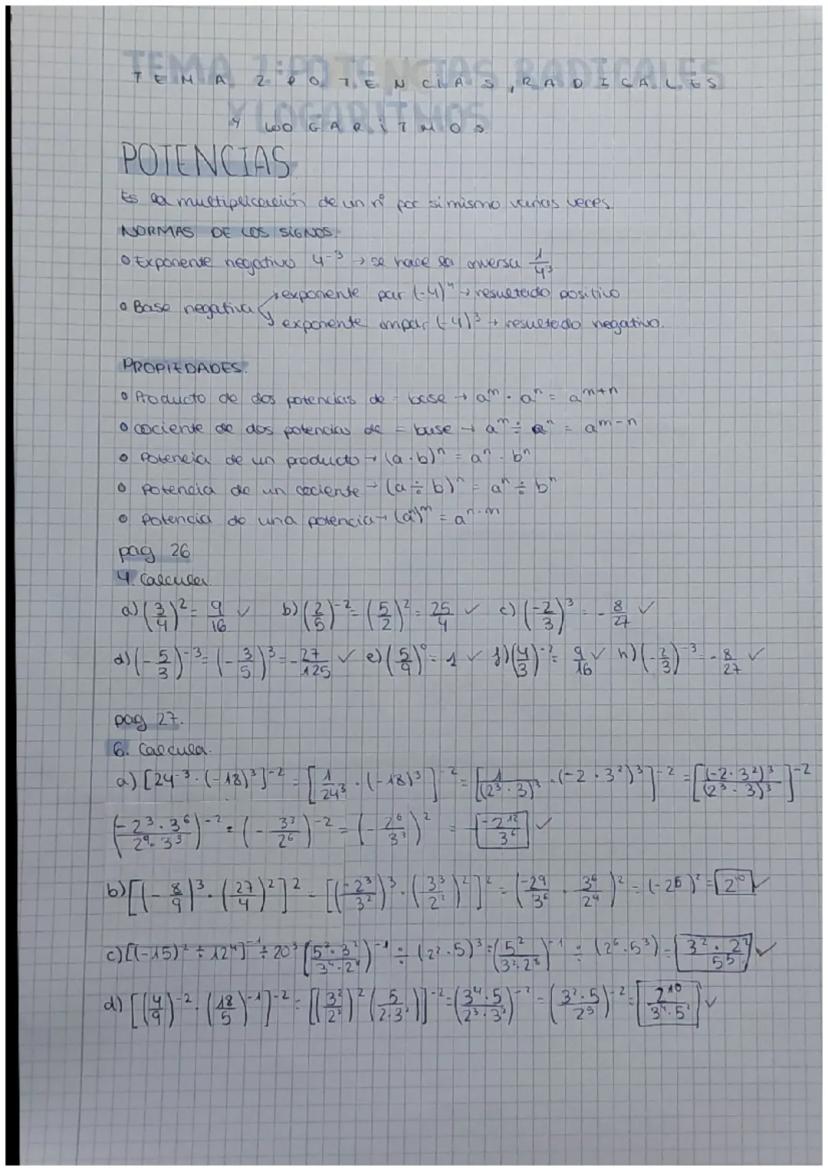 TEMA 2: POTENCIAS, RADICALES
Y LOGARITMOS
POTENCIAS
Es la multiplicación de un nº por si mismo varias veces.
NORMAS DE LOS SIGNOS:
• Exponente negativo 4⁻³ → se hace la inversa 1/4³
• Base negativa → exponente par (-4)⁴ → resultado positivo
→ exponente impar (-4)³ → resultado negativo.
PROPIEDADES:
• Producto de dos potencias de = base → aᵐ · aⁿ = aᵐ⁺ⁿ
• cociente de dos potencias de = base → aᵐ ÷ aⁿ = aᵐ⁻ⁿ
• Potencia de un producto → (a·b)ⁿ = aⁿ · bⁿ
• Potencia de un cociente → (a÷b)ⁿ = aⁿ ÷ bⁿ
• Potencia de una potencia → (aⁿ)ᵐ = aⁿ·ᵐ
pag 26
4. Calcula
a) (3/4)² = 9/16 ✓ b) (2/5)⁻² = (5/2)² = 25/4 ✓ c) (-2/3)³ = -8/27 ✓
d) (-5/3)⁻³ = (-3/5)³ = -27/125 ✓ e) (5/9)⁰ = 1 ✓ f) (4/3)⁻² = 9/16 ✓ h) (-2/3)⁻³ = -8/27 ✓
pag 27.
6. Calcula.
a) [24⁻³ · (-18)³]⁻² = [1/24³ · (-18)³]⁻² = [1/(2³·3)³ · (-2·3²)³]⁻² = [(-2·3²)³/(2³·3)³]⁻²
(-2³·3⁶/2⁹·3³)⁻² = (-3³/2⁶)⁻² = (-2⁶/3³)² = -2¹²/3⁶ ✓
b) [(-8/9)³ · (27/4)²]² = [(-2³/3²)³ · (3³/2²)²]² = (-29/3⁶ · 3⁶/2⁴)² = (-2⁵)² = 2¹⁰ ✓
c) [(-15)² ÷ 12⁴]⁻¹ ÷ 20³ (5²·3²/3⁴·2⁸)⁻¹ ÷ (2²·5)³ = (5²/3²·2⁸)⁻¹ ÷ (2⁶·5³) = 3²·2²/5⁵ ✓
d) [(4/9)⁻² · (18/5)⁻¹]⁻² = [(3²/2²)² (5/2·3²)]⁻² = (3⁴·5/2⁵·3²)⁻² = (3²·5/2⁵)⁻² = 2¹⁰/3⁴·5² ✓